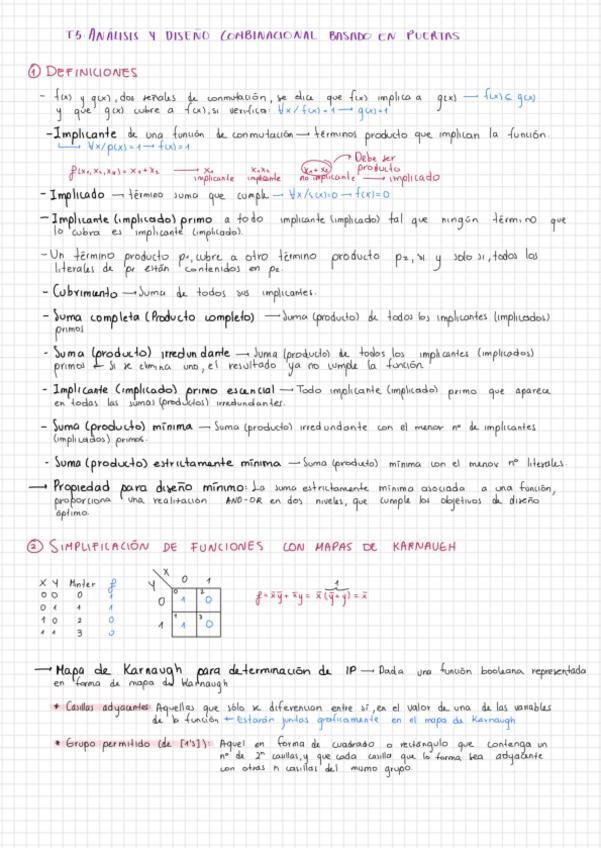 T5 ANÁLISIS Y DISEÑO COMBINACIONAL BASADO EN PUERTAS
① DEFINICIONES
- f(x) y g(x), dos señales de conmutación, se dice que f(x) implica a g(x) → f(x) ⊆ g(x)
y que g(x) cubre a f(x), si verifica: ∀x / f(x)=1 → g(x)=1
- Implicante de una función de conmutación → términos producto que implican la función.
∀x/p(x)=1 → f(x)=1
Debe ser
producto
implicante implicante no implicante → implicado
- Implicado → término suma que cumple → ∀x/s(x)=0 → f(x)=0
- Implicante (implicado) primo a todo implicante (implicado) tal que ningún término que
lo cubra es implicante (implicado).
- Un término producto p1, cubre a otro término producto p2, si y solo si, todos los
literales de p1 están contenidos en p2.
- Cubrimiento → Suma de todos sus implicantes.
- Suma completa (Producto completo) → Suma (producto) de todos los implicantes (implicados)
primos
- Suma (producto) irredundante → Suma (producto) de todos los implicantes (implicados)
primos ← Si se elimina uno, el resultado ya no cumple la función.
- Implicante (implicado) primo esencial → Todo implicante (implicado) primo que aparece
en todas las sumas (productos) irredundantes.
- Suma (producto) mínima → Suma (producto) irredundante con el menor nº de implicantes
(implicados) primos.
- Suma (producto) estrictamente mínima → Suma (producto) mínima con el menor nº literales.
→ Propiedad para diseño mínimo: La suma estrictamente mínima asociada a una función,
proporciona una realización AND-OR en dos niveles, que cumple los objetivos de diseño
óptimo.
② SIMPLIFICACIÓN DE FUNCIONES CON MAPAS DE KARNAUGH
X Y Minter f
0 0 0 1
0 1 1 1
1 0 2 0
1 1 3 0
X
Y 0 1
0 0 1 2 0
1 1 1 3 0
1
f = x̄ȳ + x̄y = x̄(ȳ+y) = x̄
→ Mapa de Karnaugh para determinación de IP → Dada una función booleana representada
en forma de mapa de Karnaugh
* Casillas adyacentes: Aquellas que sólo se diferencian entre sí, en el valor de una de las variables
de la función ← Estarán juntas gráficamente en el mapa de Karnaugh
* Grupo permitido (de [1's]): Aquel en forma de cuadrado o rectángulo que contenga un
nº de 2ⁿ casillas, y que cada casilla que lo forma sea adyacente
con otras n casillas del mismo grupo.